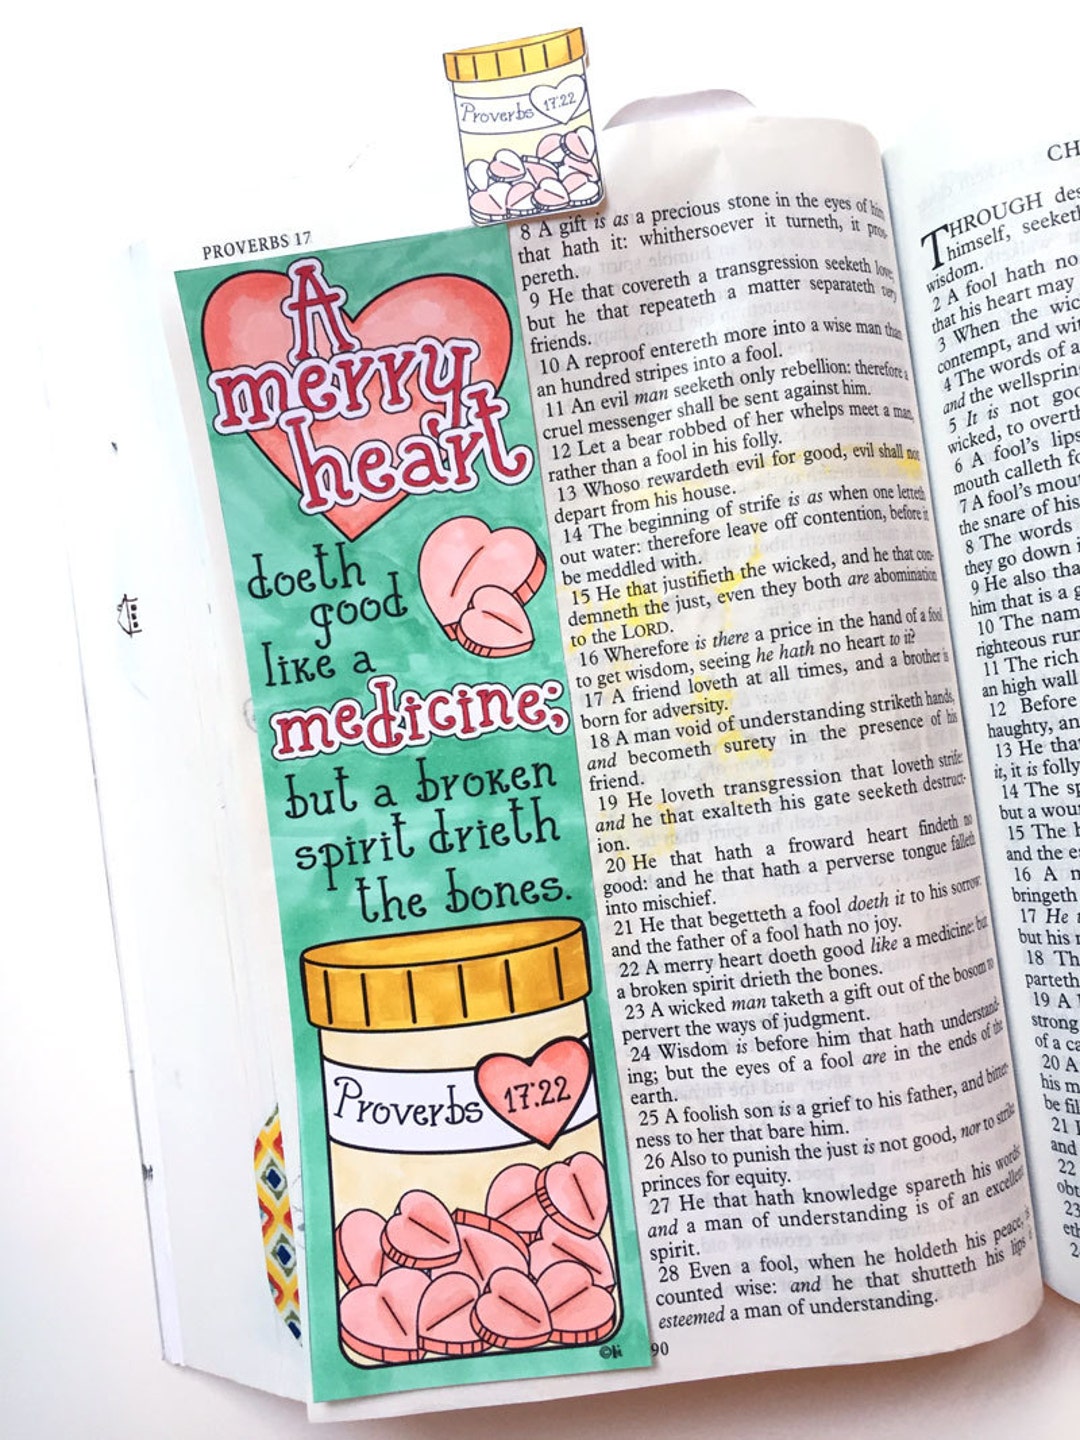 Proverbs 17:22
PROVERBS 17
A
merry
heart
doeth
good
like a
medicine;
but a broken
spirit drieth
the bones.
Proverbs 17:22
©
8 A gift is as a precious stone in the eyes of him
that hath it: whithersoever it turneth, it pros-
pereth.
9 He that covereth a transgression seeketh love;
but he that repeateth a matter separateth very
friends.
10 A reproof entereth more into a wise man than
an hundred stripes into a fool.
11 An evil man seeketh only rebellion: therefore a
cruel messenger shall be sent against him.
12 Let a bear robbed of her whelps meet a man,
rather than a fool in his folly.
13 Whoso rewardeth evil for good, evil shall not
depart from his house.
14 The beginning of strife is as when one letteth
out water: therefore leave off contention, before it
be meddled with.
15 He that justifieth the wicked, and he that con-
demneth the just, even they both are abomination
to the LORD.
16 Wherefore is there a price in the hand of a fool
to get wisdom, seeing he hath no heart to it?
17 A friend loveth at all times, and a brother is
born for adversity.
18 A man void of understanding striketh hands,
and becometh surety in the presence of his
friend.
19 He loveth transgression that loveth strife:
and he that exalteth his gate seeketh destruct-
ion.
20 He that hath a froward heart findeth no
good: and he that hath a perverse tongue falleth
into mischief.
21 He that begetteth a fool doeth it to his sorrow:
and the father of a fool hath no joy.
22 A merry heart doeth good like a medicine: but
a broken spirit drieth the bones.
23 A wicked man taketh a gift out of the bosom to
pervert the ways of judgment.
24 Wisdom is before him that hath understand-
ing; but the eyes of a fool are in the ends of the
earth.
25 A foolish son is a grief to his father, and bitter-
ness to her that bare him.
26 Also to punish the just is not good, nor to strike
princes for equity.
27 He that hath knowledge spareth his words:
and a man of understanding is of an excellent
spirit.
28 Even a fool, when he holdeth his peace, is
counted wise: and he that shutteth his lips is
esteemed a man of understanding.
90
CH
THROUGH des
himself, seeketh
wisdom.
2 A fool hath no
that his heart may
3 When the wic
contempt, and wit
4 The words of a
and the wellspring
5 It is not goo
wicked, to overth
6 A fool's lips
mouth calleth fo
7 A fool's mou
the snare of his
8 The words
they go down i
9 He also tha
him that is a g
10 The nam
righteous run
11 The rich
an high wall
12 Before
haughty, an
13 He that
it, it is folly
14 The sp
but a wou
15 The h
and the e
16 A m
bringeth
17 He
but his
18 Th
parteth
19 A
strong
of a ca
20 A
his m
be fil
21
and
22
obt
23